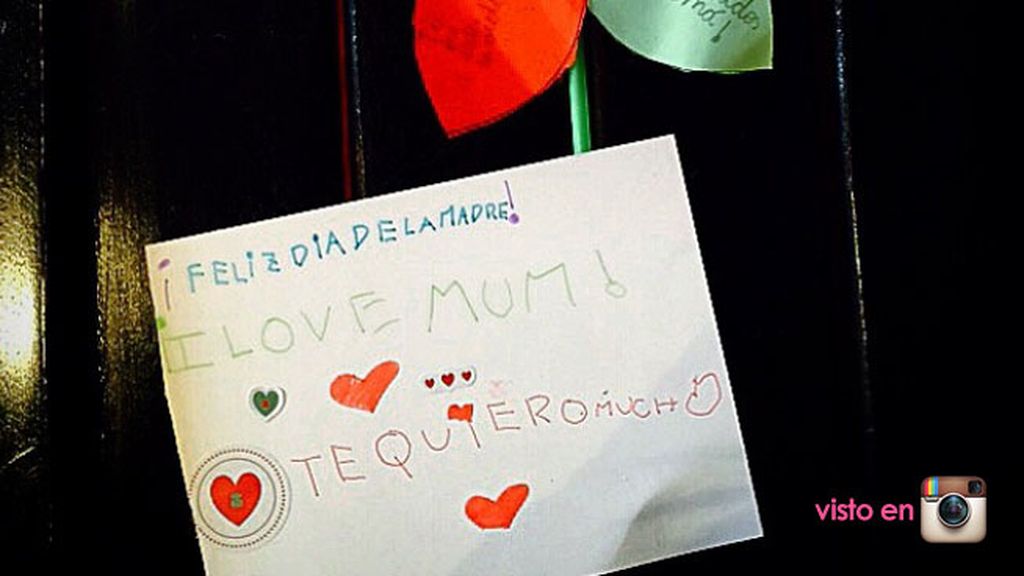 mó!
¡FELIZ DIA DE LA MADRE!
¡I LOVE MUM!
TE QUIERO MUCHO
visto en